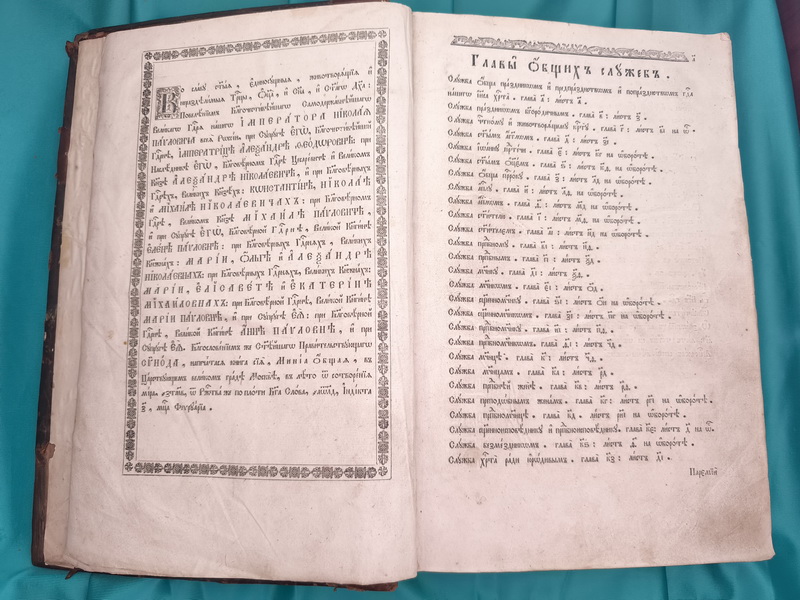 Во славу ст҃ыѧ, єдиносꙋщныѧ, животворѧщїѧ и҆
нераздѣлимыѧ Трⷪ҇цы, Ѻ҆ц҃а̀, и҆ Сн҃а, и҆ Ст҃а́гѡ Дх҃а:
Повелѣ́нїемъ Бл҃гочестивѣйшагѡ Самодержавнѣйшагѡ
Великагѡ Гдⷭ҇рѧ нашегѡ ІМПЕРАТОРА НІКОЛАѦ
ПАѴЛОВИЧА всеѧ Рѡссїи, при Сꙋпрꙋгѣ Є҆гѡ̀, Бл҃гочестивѣйшей
Гдⷭ҇рнѣ, ІМПЕРАТРИЦѢ АЛЕѮАНДРѢ ѲЕОДѠРОВНѢ: при
Наслѣдникѣ Є҆гѡ̀, Бл҃говѣрномъ Гдⷭ҇рѣ Цесаревичѣ и҆ Великомъ
Кнѧзѣ АЛЕѮАНДРѢ НІКОЛАЕВИЧѢ, и҆ при Бл҃говѣрныхъ
Гдⷭ҇рѣхъ, Великихъ Кнѧзѣхъ: КѠНСТАНТІНѢ, НІКОЛАѢ
и҆ МІХАИЛѢ НІКОЛАЕВИЧАХЪ: при Бл҃говѣрномъ
Гдⷭ҇рѣ, Великомъ Кнѧзѣ МІХАИЛѢ ПАѴЛОВИЧѢ,
и҆ при Сꙋпрꙋгѣ Є҆гѡ̀, Бл҃говѣрной Гдⷭ҇рнѣ, Великой Кнѧгинѣ
ЕЛЕНѢ ПАѴЛОВНѢ: при Бл҃говѣрныхъ Гдⷭ҇рнѧхъ, Великихъ
Кнѧжнахъ: МАРІИ, ѺЛЬГѢ и҆ АЛЕѮАНДРѢ
НІКОЛАЕВНАХЪ: при Бл҃говѣрныхъ Гдⷭ҇рнѧхъ, Великихъ Кнѧжнахъ:
МАРІИ, ЕЛІСАВЕТѢ и҆ ЕКАТЕРІНѢ
МІХАИЛОВНАХЪ: при Бл҃говѣрной Гдⷭ҇рнѣ, Великой Кнѧгинѣ
МАРІИ ПАѴЛОВНѢ, и҆ при Сꙋпрꙋгѣ Є҆ѧ̀: при Бл҃говѣрной
Гдⷭ҇рнѣ, Великой Кнѧгинѣ АННѢ ПАѴЛОВНѢ, и҆ при
Сꙋпрꙋгѣ Є҆ѧ̀. Бл҃гословенїемъ же Ст҃ѣйшагѡ Правительствꙋющагѡ
СѴНОДА, напечатасѧ книга сїѧ, Минїа Ѻ҆бщаѧ, въ
Царствꙋющемъ великомъ градѣ Москвѣ, въ лѣто ѿ сотворенїѧ
мїра ѿ Ржⷭ҇тва же по плоти Бг҃а Слова, Індїкта
мцⷭ҇а Феврꙋарїа.
Главы̀ ѻ҆́бщихъ слꙋ́жебъ.
Слꙋжба ѻ҆бща праздникѡмъ и҆ предпразднствѡмъ и҆ попразднствѡмъ гдⷭ҇а
нашегѡ і҆и҃са хрⷭ҇та̀. глава̀ а҃: листъ а҃.
Слꙋжба праздникѡмъ бг҃ородичнымъ. глава̀ в҃: листъ з҃.
Слꙋжба чтⷭ҇номꙋ и҆ животворѧщемꙋ крⷭ҇тꙋ. глава̀ г҃: листъ на ѡ҆б.
Слꙋжба ст҃ымъ глава̀ д҃: листъ
Слꙋжба і҆ѡаннꙋ прⷣтечи. глава̀ є҃: листъ на ѡ҆боротѣ.
Слꙋжба ст҃ымъ ѻ҆ц҃є́мъ. глава̀ ѕ҃: листъ на ѡ҆боротѣ.
Слꙋжба ѻ҆бща прⷪ҇рокꙋ. глава̀ з҃: листъ на ѡ҆боротѣ.
Слꙋжба а҆пⷭ҇лꙋ. глава̀ и҃: листъ на ѡ҆боротѣ.
Слꙋжба а҆пⷭ҇лѡмъ. глава̀ ѳ҃: листъ на ѡ҆боротѣ.
Слꙋжба ст҃ителю. глава̀ і҃: листъ на ѡ҆боротѣ.
Слꙋжба ст҃ителємъ. глава̀ а҃і: листъ на ѡ҆боротѣ.
Слꙋжба прпⷣбномꙋ. глава̀ в҃і: листъ
Слꙋжба прпⷣбнымъ. глава̀ г҃і: листъ
Слꙋжба мч҃никꙋ. глава̀ д҃і: листъ
Слꙋжба мч҃никѡмъ. глава̀ є҃і: листъ
Слꙋжба сщ҃енномч҃никꙋ. глава̀ ѕ҃і: листъ на ѡ҆боротѣ.
Слꙋжба сщ҃енномч҃никѡмъ. глава̀ з҃і: листъ на ѡ҆боротѣ.
Слꙋжба прпⷣбномч҃никꙋ. глава̀ и҃і: листъ
Слꙋжба прпⷣбномч҃никѡмъ. глава̀ ѳ҃і: листъ на ѡ҆боротѣ.
Слꙋжба мч҃ницѣ. глава̀ к҃: листъ
Слꙋжба мч҃ницамъ. глава̀ к҃а: листъ
Слꙋжба прпⷣбнѣй женѣ. глава̀ к҃в: листъ
Слꙋжба прпⷣбнымъ женамъ. глава̀ к҃г: листъ на ѡ҆боротѣ.
Слꙋжба прпⷣбномч҃ницѣ. глава̀ к҃д. листъ на ѡ҆боротѣ.
Слꙋжба сщ҃енноисповѣдникꙋ и҆ прпⷣбноисповѣдникꙋ. глава̀ к҃є: листъ на ѡ҆б.
Слꙋжба безмезднникѡмъ. глава̀ к҃ѕ: листъ на ѡ҆боротѣ.
Слꙋжба хрⷭ҇та̀ ради ю҆родивымъ. глава̀ к҃з: листъ
Паремїи